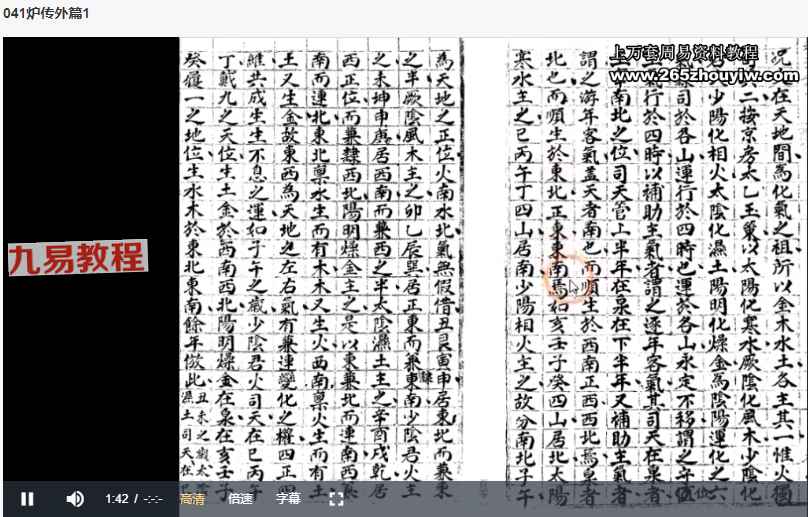 041炉传外篇1
上万套周易资料教程
www.265zhouyiw.com
九易教程
在天地間為化氣之祖所以金木水土各主其一惟火獨
二按京房太乙玉篆以太陽化寒水厥陰化風木少陰化
少陽化相火太陰化濕土陽明化燥金為陰陽運化之六
司於各山運行於四時也運於各山永定不移謂之守位
行於四時以補助主氣者謂之逐年客氣其司天在泉者
南北之位司天管上半年在泉在下半年又補助主氣者
謂之游年客氣蓋天者南也而順生於西南正西西北焉泉者
北也而順生於東北正東東南焉如亥壬子癸四山居北太陽
寒水主之巳丙午丁四山居南少陽相火主之故分南北子午
為天地之正位火南水北氣無假借丑艮寅甲居東北而兼東
之半厥陰風木主之卯乙辰巽居正東而兼東南少陰君火主
之未坤申庚居西南而兼西之半太陰濕土主之辛酉戌乾居
西正位而兼隸西北陽明燥金主之是以東兼北而連南西
南而連北東北稟水生而有木木又生火西南稟火生而有土
土又生金故東西為天地之左右氣有兼連變化之權四正四
維共成生生不息之運如子午之歲少陰君火司天在巳丙午
丁戴九之天位生土金於西南西北陽明燥金在泉在亥壬子
癸履一之地位生水木於東北東南餘年倣此丑未之歲太陰
濕土司天在
1:42 / -:-:-
高清
倍速
字幕